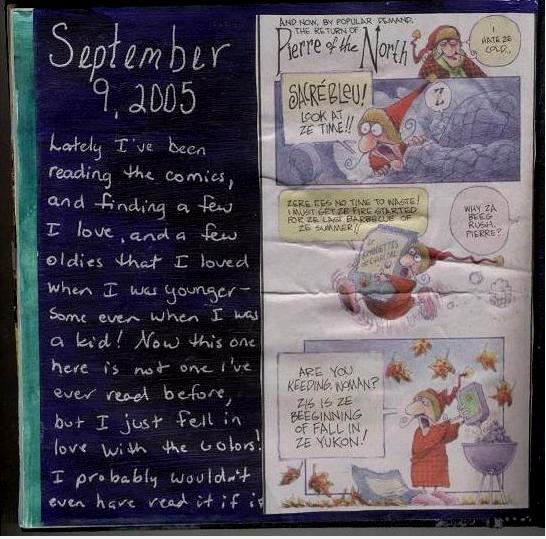 September
9, 2005
Lately I've been
reading the comics,
and finding a few
I love, and a few
oldies that I loved
when I was younger-
some even when I was
a kid! Now this one
here is not one I've
ever read before,
but I just fell in
love with the colors!
I probably wouldn't
even have read it if i
AND NOW, BY POPULAR DEMAND,
THE RETURN OF
Pierre of the North
I
HATE ZE
COLD..
SACRÉ BLEU!
LOOK AT
ZE TIME!!
?
ZERE EES NO TIME TO WASTE!
I MUST GET ZE FIRE STARTED
FOR ZE LAST BARBECUE OF
ZE SUMMER!!
WHY ZA
BEEG
RUSH,
PIERRE?
BRIQUETTES
CHARCOAL
ARE YOU
KEEDING, WOMAN?
ZIS IS ZE
BEEGINNING
OF FALL IN
ZE YUKON!